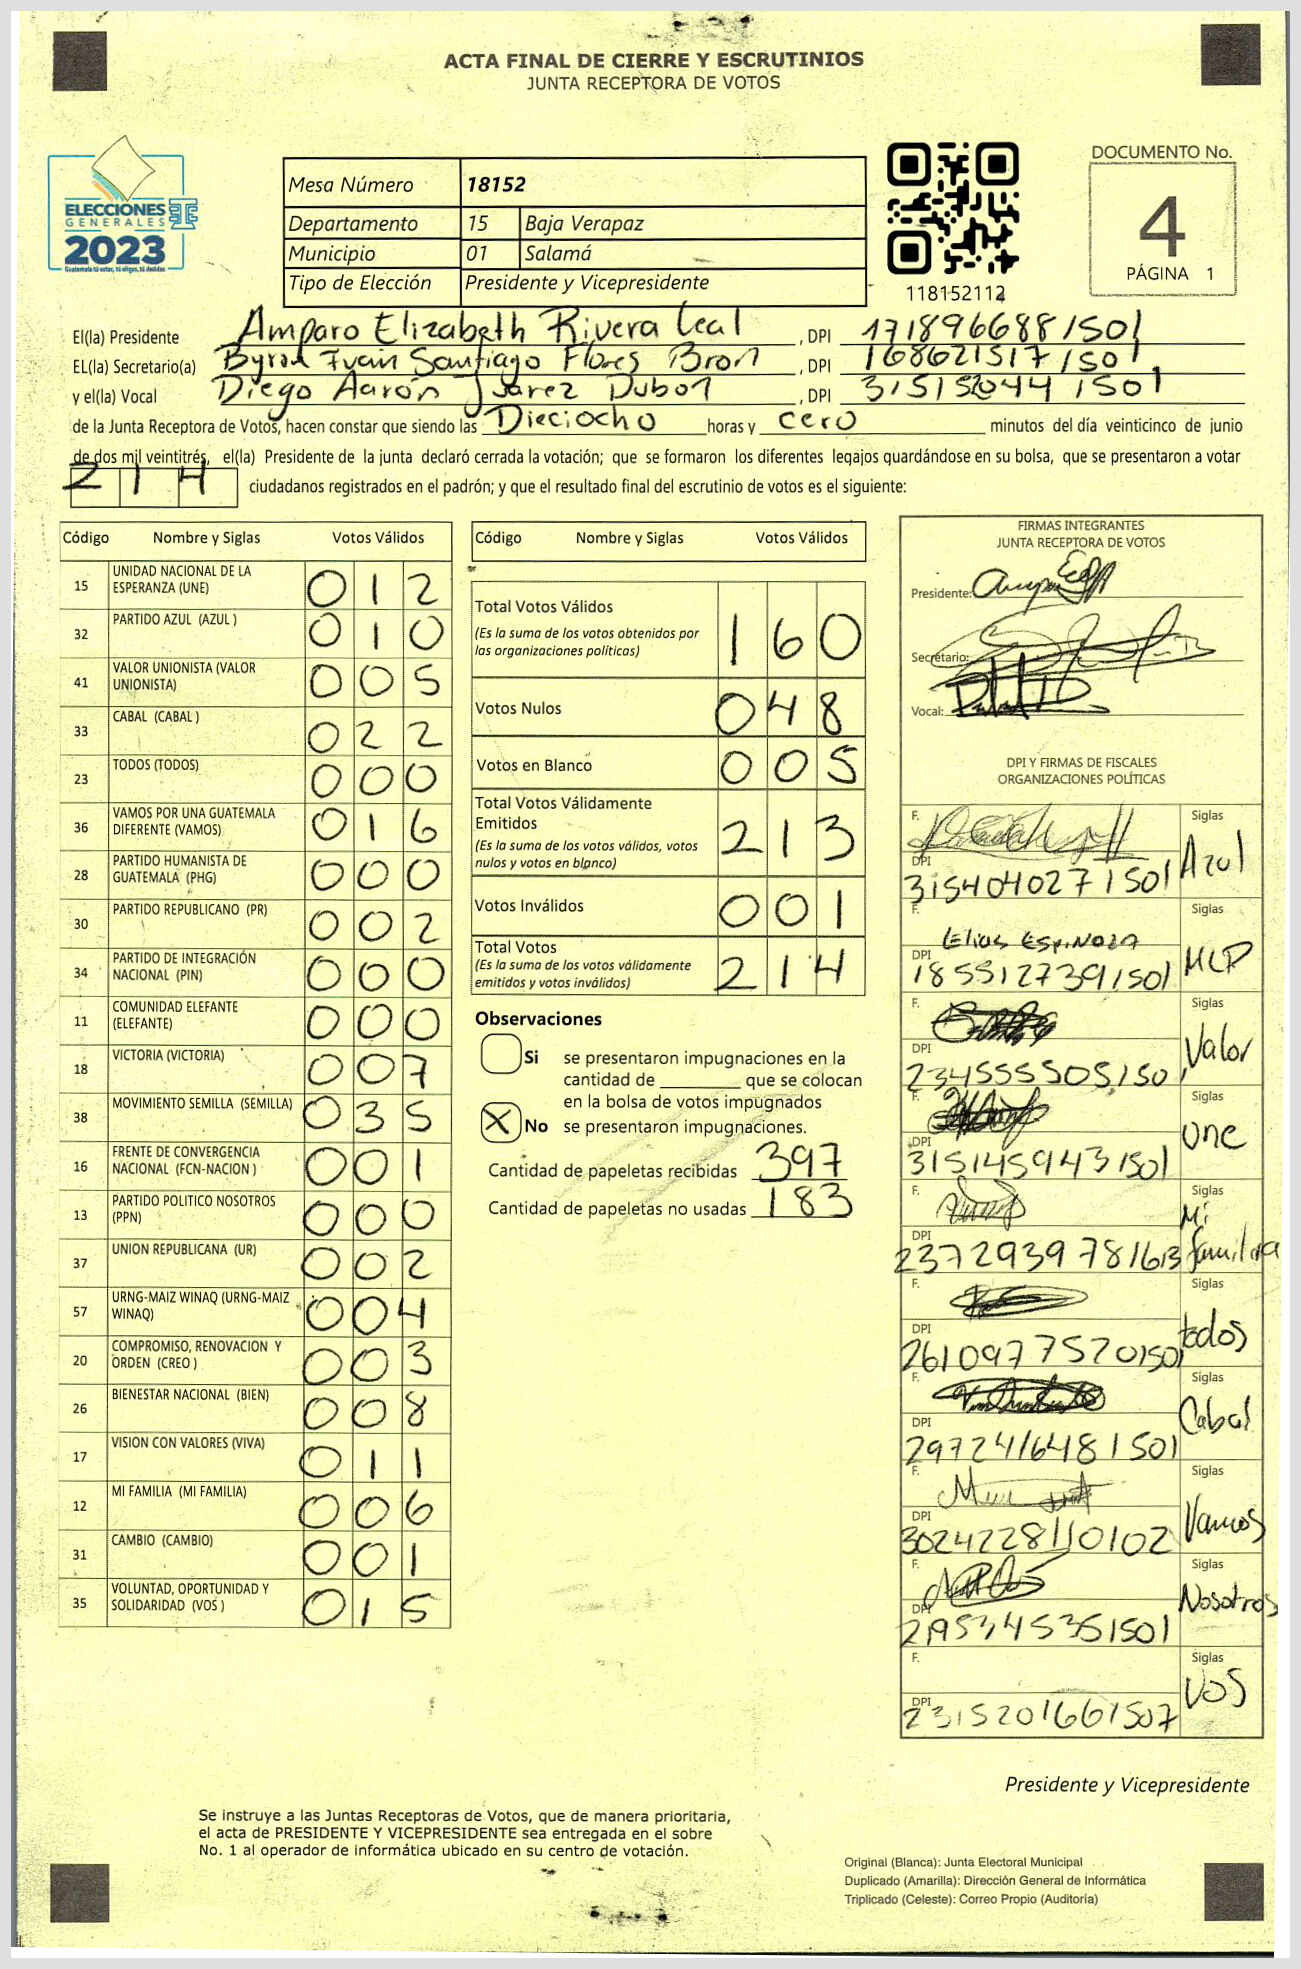 ACTA FINAL DE CIERRE Y ESCRUTINIOS
JUNTA RECEPTORA DE VOTOS
ELECCIONES
GENERALES
2023
Guatemala tú votas, tú eliges, tú decides
Mesa Número 18152
Departamento 15 Baja Verapaz
Municipio 01 Salamá
Tipo de Elección Presidente y Vicepresidente
118152112
DOCUMENTO No.
4
PÁGINA 1
El(la) Presidente Amparo Elizabeth Rivera Leal, DPI 1718966881501
EL(la) Secretario(a) Byron Iván Santiago Flores Bron, DPI 1686215171501
y el(la) Vocal Diego Aarón Juarez Dubon, DPI 315152044 1501
de la Junta Receptora de Votos, hacen constar que siendo las Dieciocho horas y cero minutos del día veinticinco de junio
de dos mil veintitrés, el(la) Presidente de la junta declaró cerrada la votación; que se formaron los diferentes legajos guardándose en su bolsa, que se presentaron a votar
214 ciudadanos registrados en el padrón; y que el resultado final del escrutinio de votos es el siguiente:
Código Nombre y Siglas Votos Válidos
15 UNIDAD NACIONAL DE LA ESPERANZA (UNE) 012
32 PARTIDO AZUL (AZUL ) 010
41 VALOR UNIONISTA (VALOR UNIONISTA) 005
33 CABAL (CABAL ) 022
23 TODOS (TODOS) 000
36 VAMOS POR UNA GUATEMALA DIFERENTE (VAMOS) 016
28 PARTIDO HUMANISTA DE GUATEMALA (PHG) 000
30 PARTIDO REPUBLICANO (PR) 002
34 PARTIDO DE INTEGRACIÓN NACIONAL (PIN) 000
11 COMUNIDAD ELEFANTE (ELEFANTE) 000
18 VICTORIA (VICTORIA) 007
38 MOVIMIENTO SEMILLA (SEMILLA) 035
16 FRENTE DE CONVERGENCIA NACIONAL (FCN-NACION ) 001
13 PARTIDO POLITICO NOSOTROS (PPN) 000
37 UNION REPUBLICANA (UR) 002
57 URNG-MAIZ WINAQ (URNG-MAIZ WINAQ) 004
20 COMPROMISO, RENOVACION Y ORDEN (CREO ) 003
26 BIENESTAR NACIONAL (BIEN) 008
17 VISION CON VALORES (VIVA) 011
12 MI FAMILIA (MI FAMILIA) 006
31 CAMBIO (CAMBIO) 001
35 VOLUNTAD, OPORTUNIDAD Y SOLIDARIDAD (VOS ) 015
Código Nombre y Siglas Votos Válidos
Total Votos Válidos 160
(Es la suma de los votos obtenidos por
las organizaciones políticas)
Votos Nulos 048
Votos en Blanco 005
Total Votos Válidamente
Emitidos 213
(Es la suma de los votos válidos, votos
nulos y votos en blanco)
Votos Inválidos 001
Total Votos 214
(Es la suma de los votos válidamente
emitidos y votos inválidos)
Observaciones
Si se presentaron impugnaciones en la
cantidad de ________ que se colocan
en la bolsa de votos impugnados
X No se presentaron impugnaciones.
Cantidad de papeletas recibidas 397
Cantidad de papeletas no usadas 183
FIRMAS INTEGRANTES
JUNTA RECEPTORA DE VOTOS
Presidente:
Secretario:
Vocal:
DPI Y FIRMAS DE FISCALES
ORGANIZACIONES POLÍTICAS
F. Siglas
DPI 3154040271501 Azul
F. Elias Espinoza Siglas
DPI 1855127391501 MLP
F. Siglas
DPI 234555505150, Valor
F. Siglas
DPI 3151459431501 une
F. Siglas
DPI 2372939781613 Mi familia
F. Siglas
DPI 26109775201501 todos
F. Siglas
DPI 2972416481501 Cabal
F. Siglas
DPI 3024228110102 Vamos
F. Siglas
DPI Nosotros
F. Siglas
DPI 2315201661507 VOS
Presidente y Vicepresidente
Se instruye a las Juntas Receptoras de Votos, que de manera prioritaria,
el acta de PRESIDENTE Y VICEPRESIDENTE sea entregada en el sobre
No. 1 al operador de informática ubicado en su centro de votación.
Original (Blanca): Junta Electoral Municipal
Duplicado (Amarilla): Dirección General de Informática
Triplicado (Celeste): Correo Propio (Auditoría)